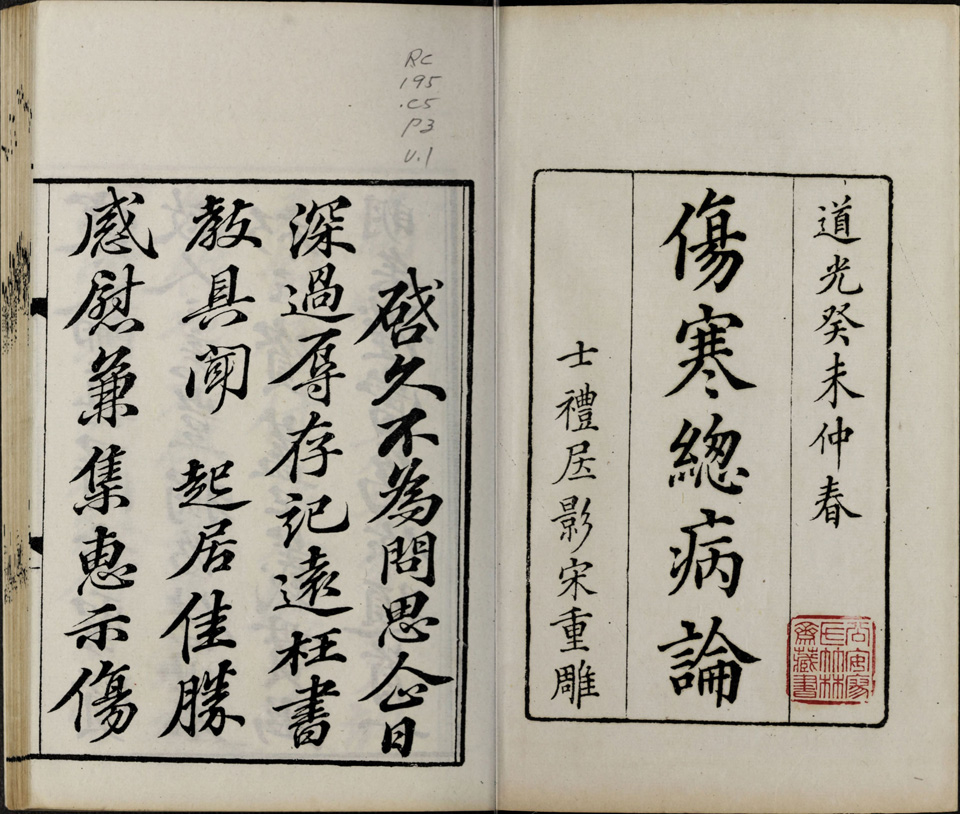 道光癸未仲春
傷寒緫病論
士禮居影宋重雕
齋藏書
RC
195
.C5
P3
V.1
啓久不為問思企日
深過辱存記遠枉書
教具聞 起居佳勝
感慰兼集惠示傷